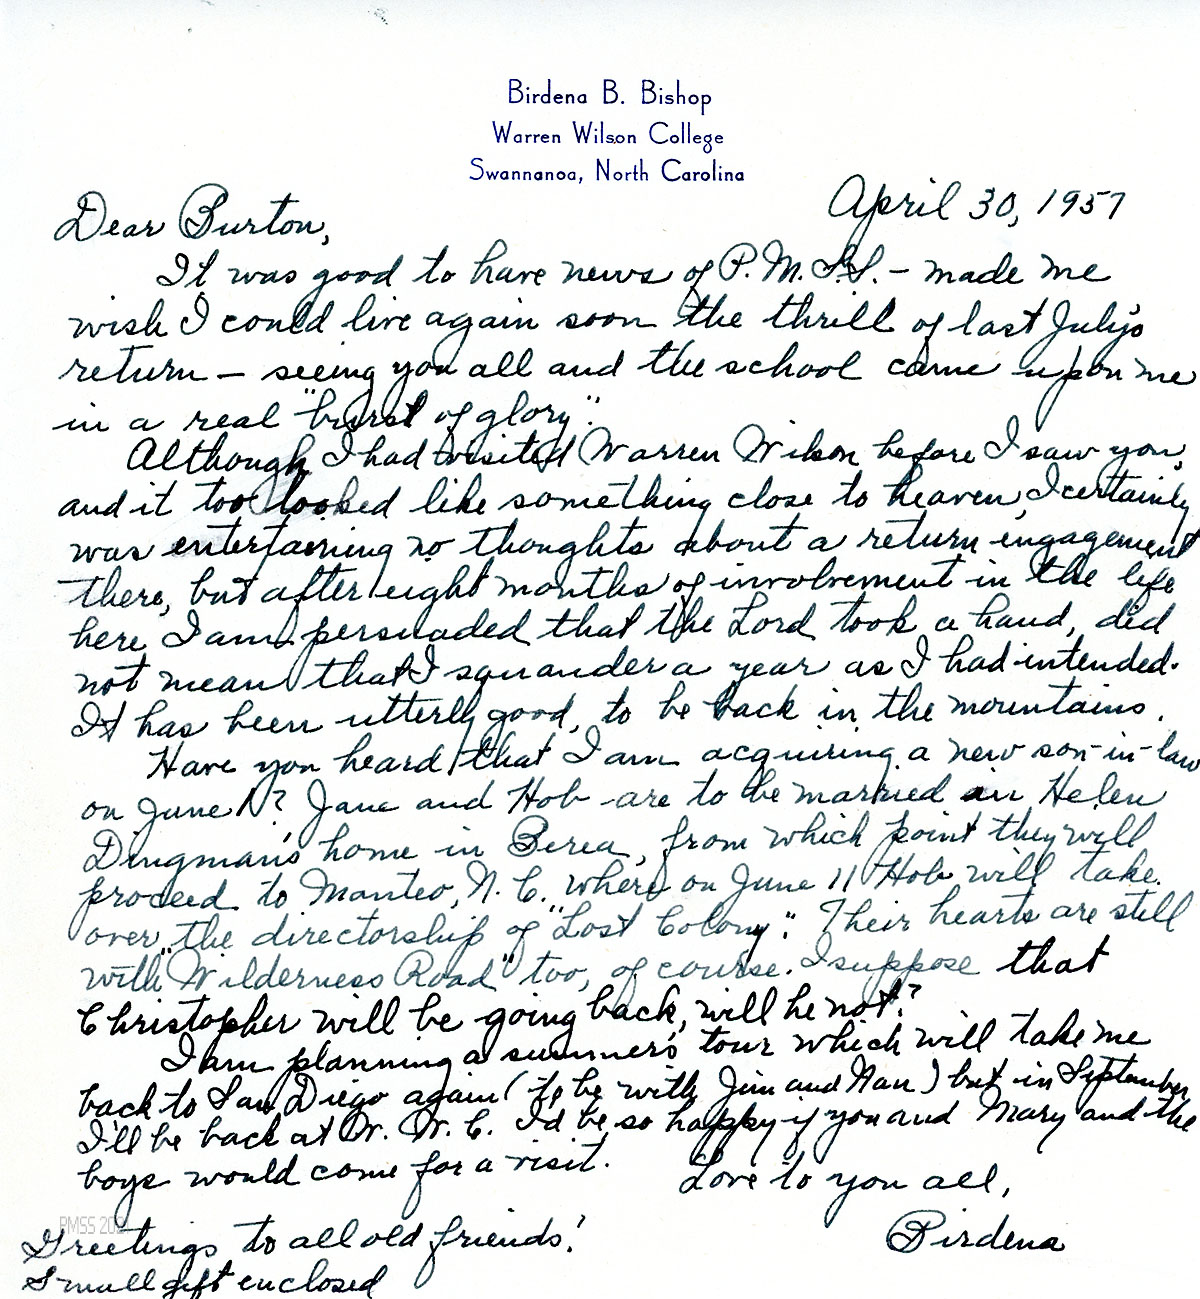 Birdena B. Bishop
Warren Wilson College
Swannanoa, North Carolina
April 30, 1957
Dear Burton,
It was good to have news of P.M.S.S. – made me
wish I could live again soon the thrill of last July's
return – seeing you all and the school came upon me
in a real "burst of glory".
Although I had visited Warren Wilson before I saw you,
and it too looked like something close to heaven, I certainly
was entertaining no thoughts about a return engagement
there, but after eight months of involvement in the life
here I am persuaded that the Lord took a hand, did
not mean that I squander a year as I had intended.
It has been utterly good, to be back in the mountains.
Have you heard that I am acquiring a new son-in-law
on June 1? Jane and Hob are to be married in Helen
Dingman's home in Berea, from which point they will
proceed to Manteo, N.C. where on June 11 Hob will take
over the directorship of "Lost Colony". Their hearts are still
with "Wilderness Road" too, of course. I suppose that
Christopher will be going back, will he not?
I am planning a summer's tour which will take me
back to San Diego again (to be with Jim and Nan) but in September
I'll be back at W. W. C. I'd be so happy if you and Mary and the
boys would come for a visit.
Love to you all,
Birdena
PMSS 202
Greetings to all old friends!
Small gift enclosed